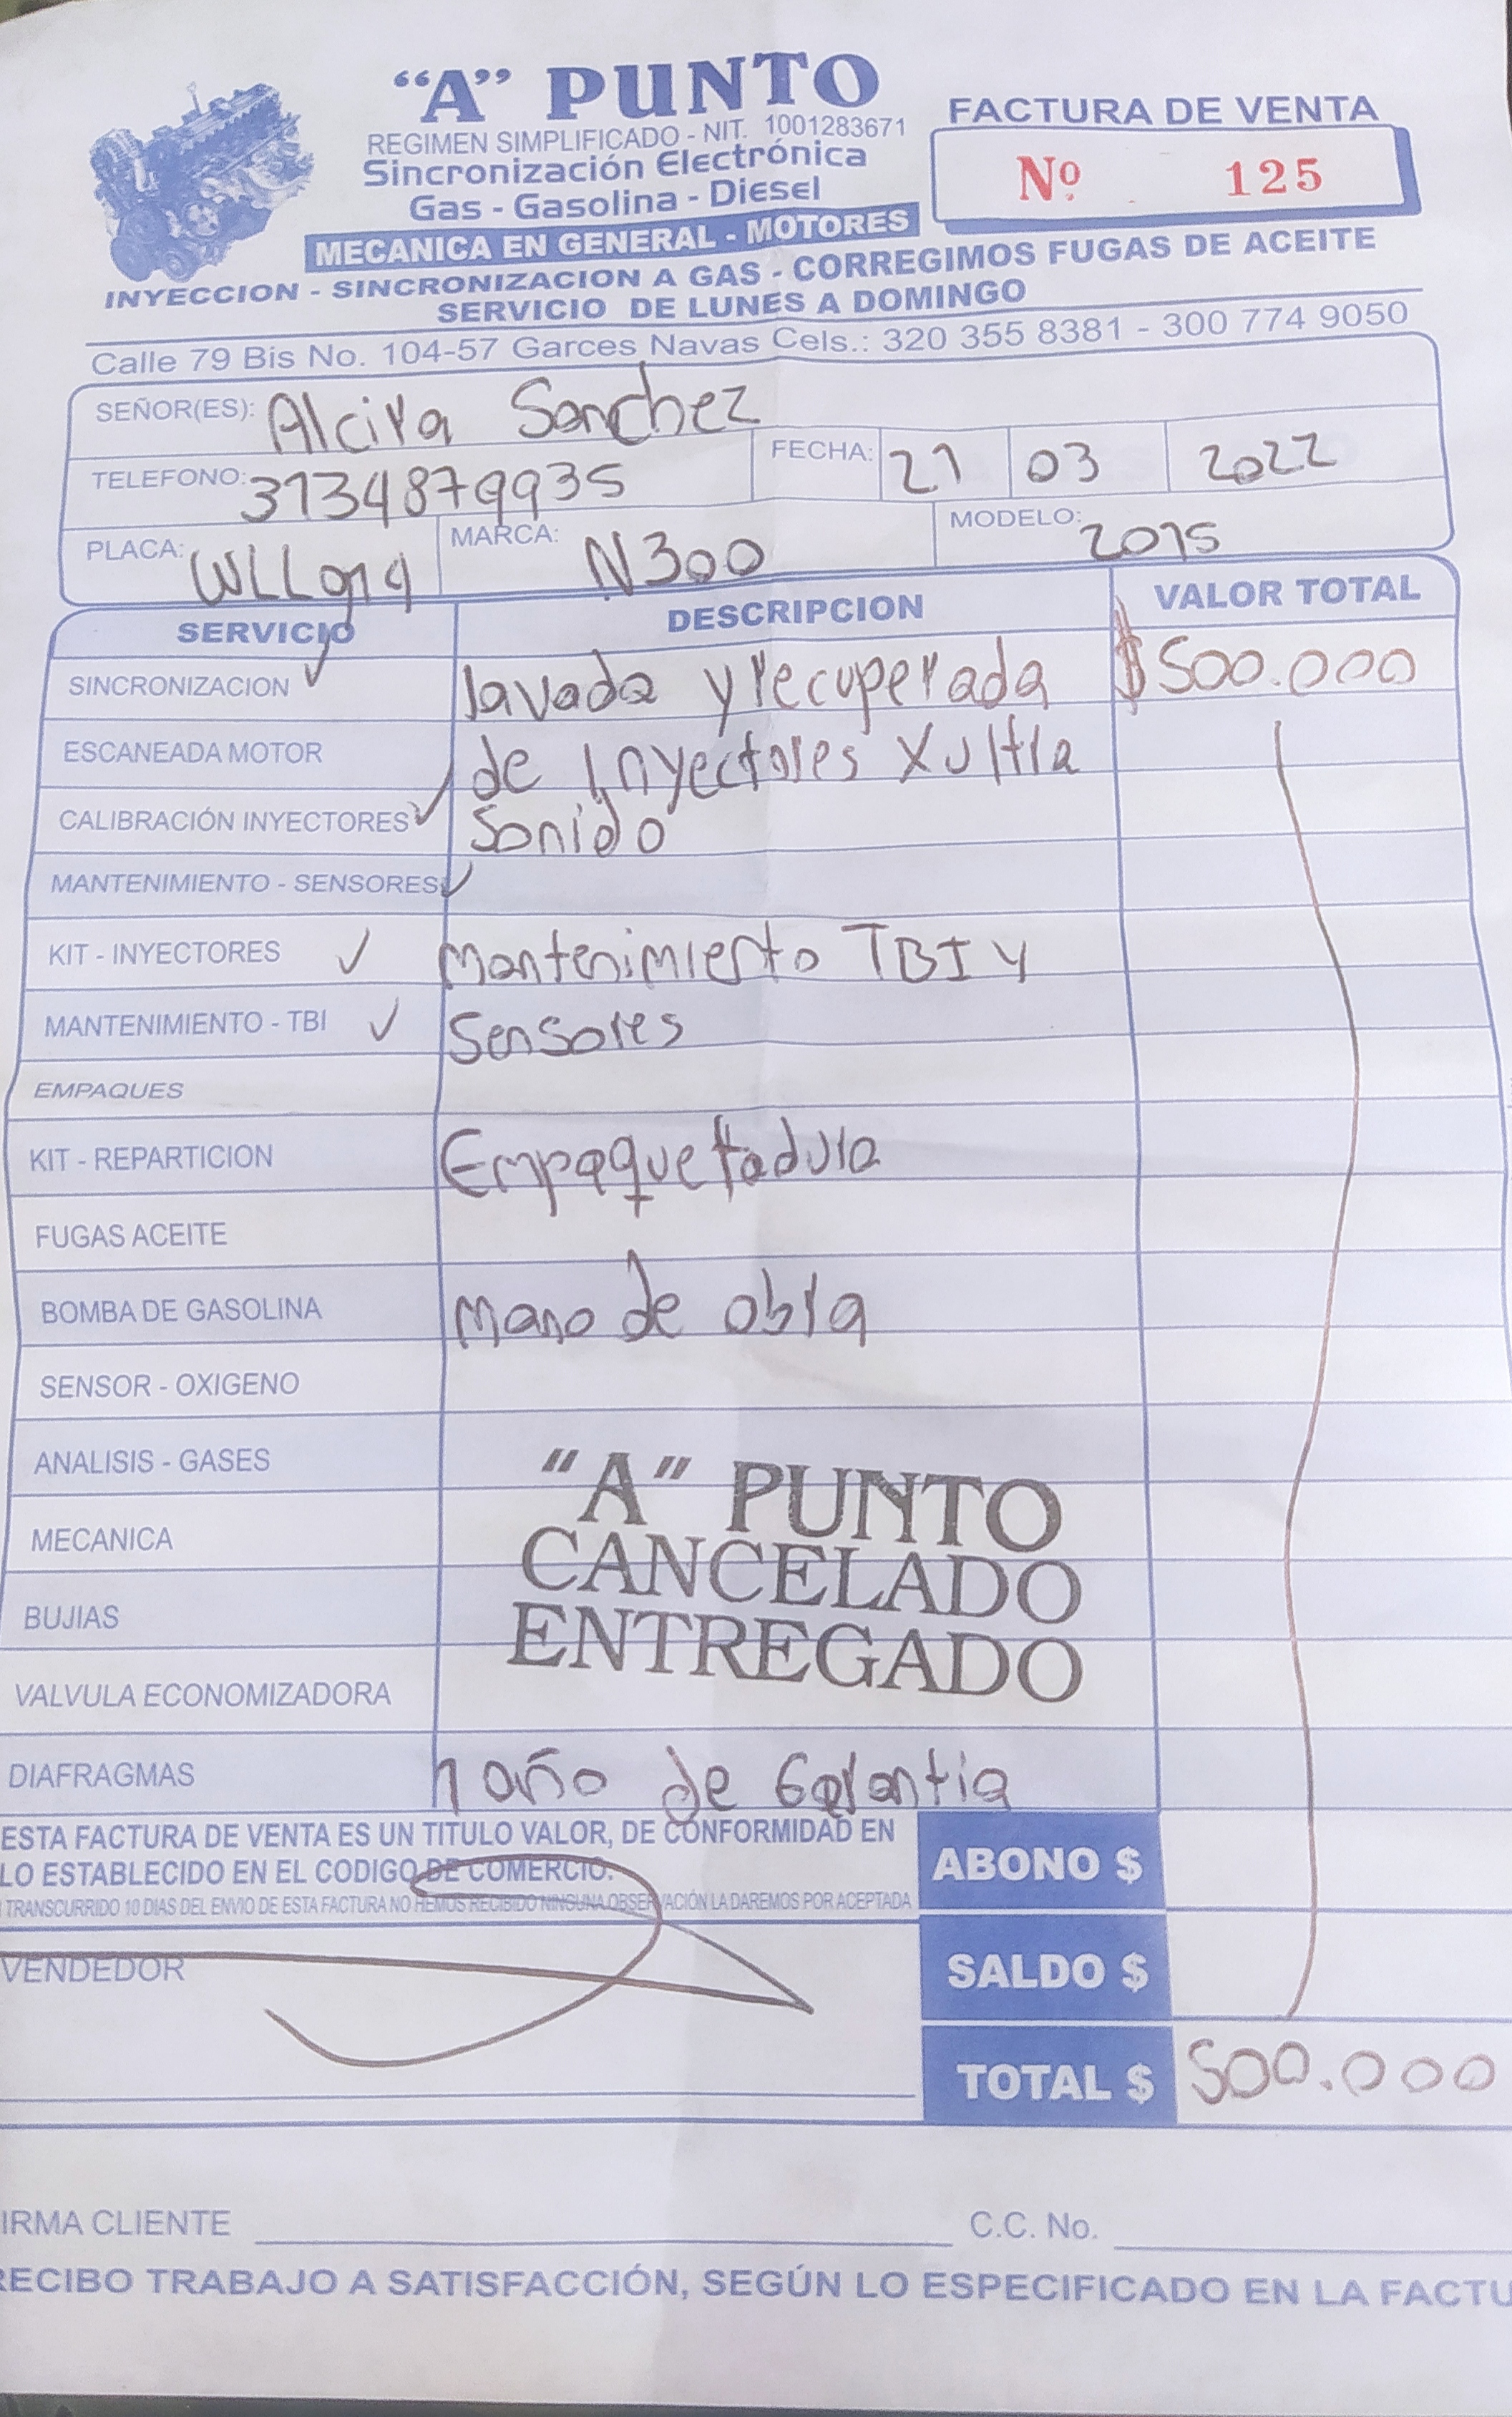 "A" PUNTO
REGIMEN SIMPLIFICADO - NIT. 1001283671
Sincronización Electrónica
Gas - Gasolina - Diesel
MECANICA EN GENERAL - MOTORES
FACTURA DE VENTA
Nº 125
INYECCION - SINCRONIZACION A GAS - CORREGIMOS FUGAS DE ACEITE
SERVICIO DE LUNES A DOMINGO
Calle 79 Bis No. 104-57 Garces Navas Cels.: 320 355 8381 - 300 774 9050
SEÑOR(ES): Alcira Sanchez
TELEFONO: 3134879935 FECHA: 21 03 2022
PLACA: WLL919 MARCA: N300 MODELO: 2015
SERVICIO DESCRIPCION VALOR TOTAL
SINCRONIZACION ✓ lavada y recuperada $500.000
ESCANEADA MOTOR de Inyectores X Ultra
CALIBRACIÓN INYECTORES ✓ Sonido
MANTENIMIENTO - SENSORES ✓
KIT - INYECTORES ✓ Mantenimiento TBI y
MANTENIMIENTO - TBI ✓ Sensores
EMPAQUES
KIT - REPARTICION Empaquetadura
FUGAS ACEITE
BOMBA DE GASOLINA Mano de obra
SENSOR - OXIGENO
ANALISIS - GASES
MECANICA
BUJIAS
"A" PUNTO
CANCELADO
ENTREGADO
VALVULA ECONOMIZADORA
DIAFRAGMAS 1 año de Garantia
ESTA FACTURA DE VENTA ES UN TITULO VALOR, DE CONFORMIDAD EN
LO ESTABLECIDO EN EL CODIGO DE COMERCIO.
TRANSCURRIDO 10 DIAS DEL ENVIO DE ESTA FACTURA NO HEMOS RECIBIDO NINGUNA OBSERVACIÓN LA DAREMOS POR ACEPTADA
ABONO $
VENDEDOR
SALDO $
TOTAL $ 500.000
IRMA CLIENTE C.C. No.
RECIBO TRABAJO A SATISFACCIÓN, SEGÚN LO ESPECIFICADO EN LA FACTU